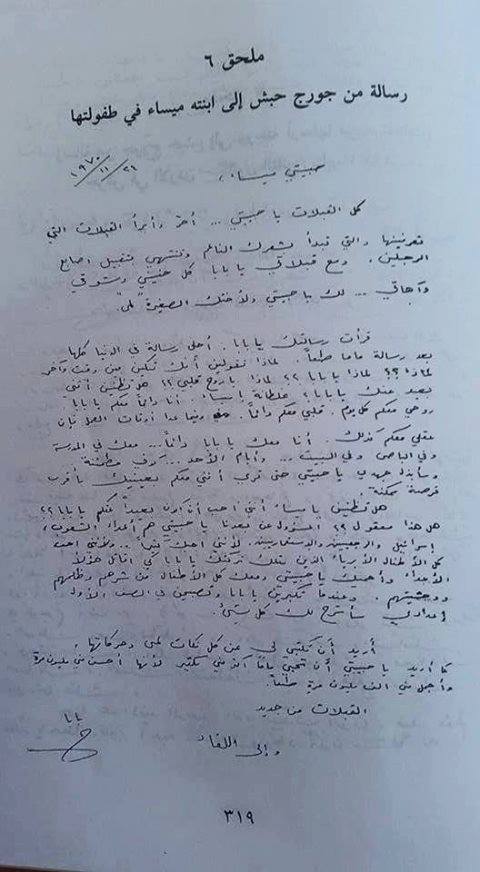 ملحق ٦
رسالة من جورج حبش إلى ابنته ميساء في طفولتها
حبيبتي ميساء،
٢٦/١١/١٩٧٠
كل القبلات يا حبيبتي ... أحرّ وأبرأ القبلات التي
تعرفينها والتي تبدأ بشعرك الناعم وتنتهي بتقبيل اصابع
الرجلين. ومع قبلاتي يا بابا كل حنيني وشوقي
وآهاتي ... لك يا حبيبتي ولأختك الصغيرة "لمى".
قرأت رسالتك يا بابا. أحلى رسالة في الدنيا كلها
بعد رسالة ماما طبعاً. لماذا تقولين أنك تبكين من وقت لآخر
لماذا؟؟ لماذا يا بابا؟؟ لماذا يا روح قلبي؟؟ هل تظنين أنني
بعيد عنك يا بابا؟ غلطانة يا ميساء. أنا دائماً معكم يا بابا.
روحي معكم كل يوم. قلبي معكم دائماً. وفيما عدا أوقات العمل فإن
عقلي معكم كذلك. أنا معك يا بابا دائماً... معك في المدرسة
وفي الباص وفي البيت ... وأيام الأحد ... كوني مطمئنة.
وسأبذل جهدي يا حبيبتي حتى تري أنني معكم بعينيك بأقرب
فرصة ممكنة.
هل تظنين يا ميساء أنني احب أن أكون بعيداً عنكم يا بابا؟؟
هل هذا معقول؟؟ المسؤول عن بعدنا يا حبيبتي هم أعداء الشعوب،
إسرائيل والرجعيين والاستعماريين. لأنني احبك كثيراً .. ولأنني احب
كل الأطفال الأبرياء الذين مثلك تركتك يا بابا كي اقاتل هؤلاء
الأعداء وأحميك يا حبيبتي ومعك كل الأطفال من شرهم وظلمهم
ووحشيتهم. وعندما تكبرين يا بابا وتصبحين في الصف الأول
اعدادي سأشرح لك كل شيء.
أريد أن تكتبي لي عن كل نكات لمى وحركاتها،
كما أريد يا حبيبتي أن تحبي ماما اكثر مني بكثير لأنها أحسن مني مليون مرة
وأجمل مني الف مليون مرة طبعاً.
القبلات من جديد
وإلى اللقاء
بابا
٣١٩